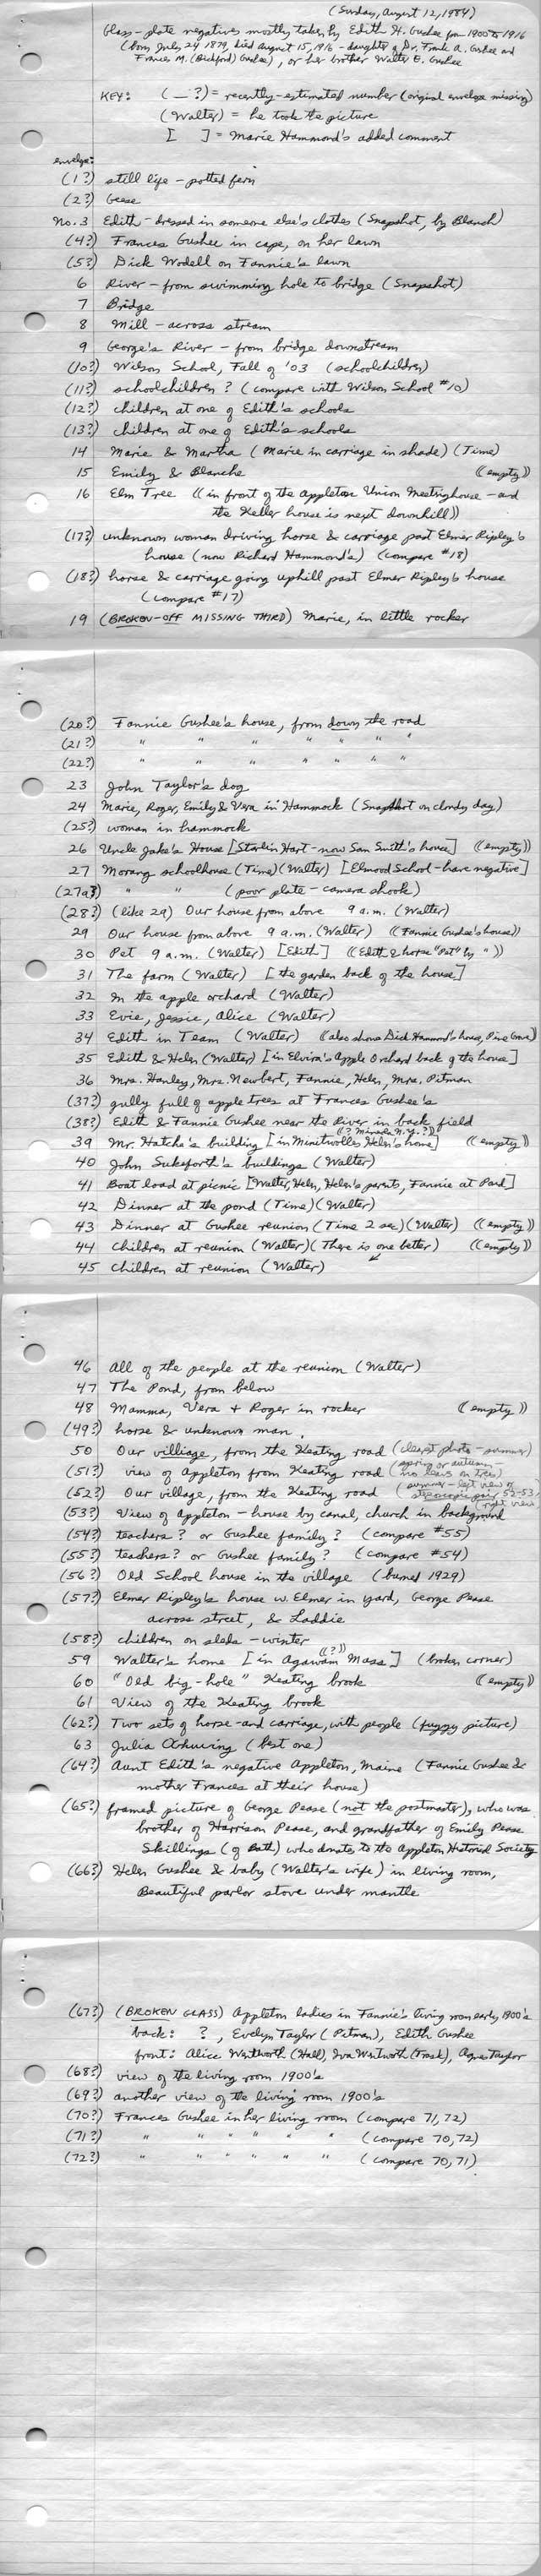 (Sunday, August 12, 1984)
Glass-plate negatives mostly taken by Edith H. Gushee from 1900 to 1916
(born July 24 1879, died August 15, 1916 - daughter of Dr. Frank A. Gushee and
Frances M. (Bickford) Gushee), or her brother Walter E. Gushee
KEY: (_?) = recently-estimated number (original envelope missing)
(Walter) = he took the picture
[ ] = Marie Hammond's added comment
envelope:
(1?) still life - potted fern
(2?) Geese
No. 3 Edith - dressed in someone else's clothes (Snapshot, by Blanch)
(4?) Frances Gushee in cape, on her lawn
(5?) Dick Wodell on Fannie's lawn
6 River - from swimming hole to bridge (Snapshot)
7 Bridge
8 Mill - across stream
9 George's River - from bridge downstream
(10?) Wilson School, Fall of '03 (schoolchildren)
(11?) schoolchildren? (compare with Wilson School #10)
(12?) children at one of Edith's schools
(13?) children at one of Edith's schools
14 Marie & Martha (Marie in carriage in shade) (Time)
15 Emily & Blanche ((empty))
16 Elm Tree ((in front of the Appleton Union Meetinghouse - and
the Keller house is next downhill))
(17?) unknown woman driving horse & carriage past Elmer Ripley's
house (now Richard Hammond's) (compare #18)
(18?) horse & carriage going uphill past Elmer Ripley's house
(compare #17)
19 (BROKEN-OFF MISSING THIRD) Marie, in little rocker
(20?) Fannie Gushee's house, from down the road
(21?) " " " " " " "
(22?) " " " " " " "
23 John Taylor's dog
24 Marie, Roger, Emily & Vera in Hammock (Snapshot on cloudy day)
(25?) woman in hammock
26 Uncle Jake's House [Starlin Hart - now San Smith's house] ((empty))
27 Morang schoolhouse (Time) (Walter) [Elmood School - have negative]
(27a?) " " (poor plate - camera shook)
(28?) (like 29) Our house from above 9 a.m. (Walter)
29 Our house from above 9 a.m. (Walter) ((Fannie Gushee's house))
30 Pet 9 a.m. (Walter) [Edith] ((Edith & horse "Pet" by "))
31 The farm (Walter) [the garden back of the house]
32 In the apple orchard (Walter)
33 Evie, Jessie, Alice (Walter)
34 Edith in Team (Walter) ((also shows Dick Hammond's house, Pine Grove))
35 Edith & Helen (Walter) [in Elvira's Apple Orchard back of the house]
36 Mrs. Hanley, Mrs. Newbert, Fannie, Helen, Mrs. Pitman
(37?) gully full of apple trees at Frances Gushee's
(38?) Edith & Fannie Gushee near the River in back field
((? Mineola N.Y.?))
39 Mr. Hatch's building [in Minitwolles Helen's home] ((empty))
40 John Sukeforth's buildings (Walter)
41 Boat load at picnic [Walter, Helen, Helen's parents, Fannie at Pond]
42 Dinner at the pond (Time) (Walter)
43 Dinner at Gushee reunion (Time 2 sec) (Walter) ((empty))
44 children at reunion (Walter) (There is one better) ((empty))
45 children at reunion (Walter)
46 All of the people at the reunion (Walter)
47 The Pond, from below
48 Mamma, Vera + Roger in rocker ((empty))
(49?) horse & unknown man.
50 Our villiage, from the Keating road (clearest photo - summer)
(51?) view of Appleton from Keating road (spring or autumn - no leaves on trees)
(52?) Our village, from the Keating road (summer - left view of stereoscopic pair 52-53)
(right view)
(53?) View of Appleton - house by canal, church in background
(54?) teachers? or Gushee family? (compare #55)
(55?) teachers? or Gushee family? (compare #54)
(56?) Old School house in the village (burned 1929)
(57?) Elmer Ripley's house w. Elmer in yard, George Pease
across street, & Laddie
(58?) children on sleds - winter
((?))
59 Walter's home [in Agawam Mass] (broken corner)
60 "Old big-hole" Keating brook ((empty))
61 View of the Keating brook
(62?) Two sets of horse-and carriage, with people (fuzzy picture)
63 Julia (best one)
(64?) Aunt Edith's negative Appleton, Maine (Fannie Gushee &
mother Frances at their house)
(65?) framed picture of George Pease (not the postmaster), who was
brother of Harrison Pease, and grandfather of Emily Pease
Skillings (of Bath) who donates to the Appleton Historical Society
(66?) Helen Gushee & baby (Walter's wife) in living room,
Beautiful parlor stove under mantle
(67?) (BROKEN GLASS) Appleton ladies in Fannie's living room early 1900's
back: ?, Evelyn Taylor (Pitman), Edith Gushee
front: Alice Wentworth (Hall), Iva Wentworth (Trask), Agnes Taylor
(68?) view of the living room 1900's
(69?) another view of the living room 1900's
(70?) Frances Gushee in her living room (compare 71, 72)
(71?) " " " " " " (compare 70, 72)
(72?) " " " " " " (compare 70, 71)